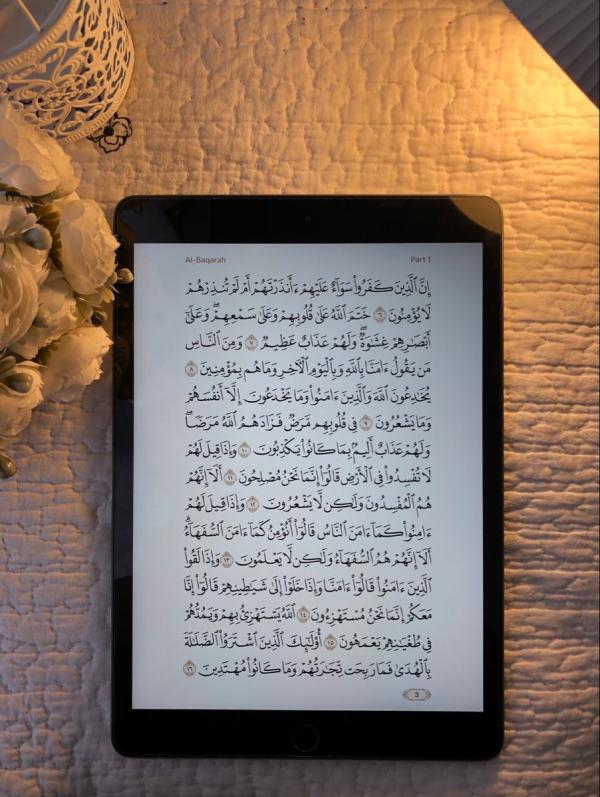 Al-Baqarah
Part 1
إِنَّ ٱلَّذِينَ كَفَرُوا۟ سَوَآءٌ عَلَيْهِمْ ءَأَنذَرْتَهُمْ أَمْ لَمْ تُنذِرْهُمْ
لَا يُؤْمِنُونَ ٦ خَتَمَ ٱللَّهُ عَلَىٰ قُلُوبِهِمْ وَعَلَىٰ سَمْعِهِمْ ۖ وَعَلَىٰٓ
أَبْصَـٰرِهِمْ غِشَـٰوَةٌ ۖ وَلَهُمْ عَذَابٌ عَظِيمٌ ٧ وَمِنَ ٱلنَّاسِ
مَن يَقُولُ ءَامَنَّا بِٱللَّهِ وَبِٱلْيَوْمِ ٱلْـَٔاخِرِ وَمَا هُم بِمُؤْمِنِينَ ٨
يُخَـٰدِعُونَ ٱللَّهَ وَٱلَّذِينَ ءَامَنُوا۟ وَمَا يَخْدَعُونَ إِلَّآ أَنفُسَهُمْ
وَمَا يَشْعُرُونَ ٩ فِى قُلُوبِهِم مَّرَضٌ فَزَادَهُمُ ٱللَّهُ مَرَضًا ۖ
وَلَهُمْ عَذَابٌ أَلِيمٌۢ بِمَا كَانُوا۟ يَكْذِبُونَ ١٠ وَإِذَا قِيلَ لَهُمْ
لَا تُفْسِدُوا۟ فِى ٱلْأَرْضِ قَالُوٓا۟ إِنَّمَا نَحْنُ مُصْلِحُونَ ١١ أَلَآ إِنَّهُمْ
هُمُ ٱلْمُفْسِدُونَ وَلَـٰكِن لَّا يَشْعُرُونَ ١٢ وَإِذَا قِيلَ لَهُمْ
ءَامِنُوا۟ كَمَآ ءَامَنَ ٱلنَّاسُ قَالُوٓا۟ أَنُؤْمِنُ كَمَآ ءَامَنَ ٱلسُّفَهَآءُ ۗ
أَلَآ إِنَّهُمْ هُمُ ٱلسُّفَهَآءُ وَلَـٰكِن لَّا يَعْلَمُونَ ١٣ وَإِذَا لَقُوا۟
ٱلَّذِينَ ءَامَنُوا۟ قَالُوٓا۟ ءَامَنَّا وَإِذَا خَلَوْا۟ إِلَىٰ شَيَـٰطِينِهِمْ قَالُوٓا۟ إِنَّا
مَعَكُمْ إِنَّمَا نَحْنُ مُسْتَهْزِءُونَ ١٤ ٱللَّهُ يَسْتَهْزِئُ بِهِمْ وَيَمُدُّهُمْ
فِى طُغْيَـٰنِهِمْ يَعْمَهُونَ ١٥ أُو۟لَـٰٓئِكَ ٱلَّذِينَ ٱشْتَرَوُا۟ ٱلضَّلَـٰلَةَ
بِٱلْهُدَىٰ فَمَا رَبِحَت تِّجَـٰرَتُهُمْ وَمَا كَانُوا۟ مُهْتَدِينَ ١٦
3